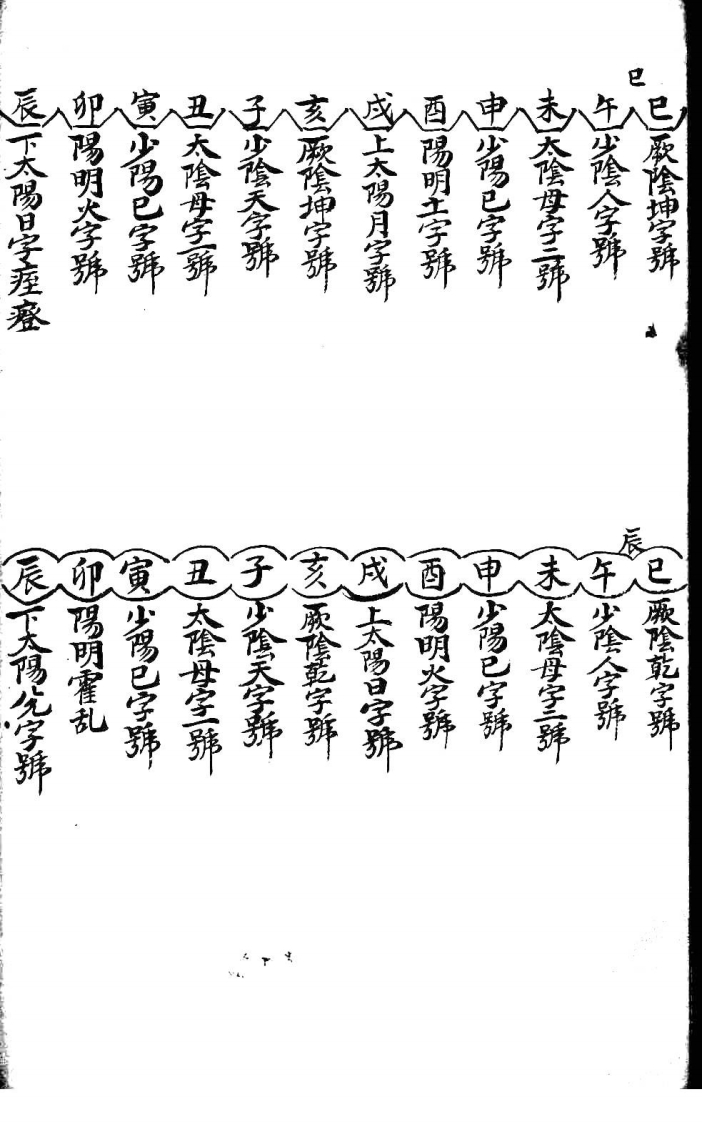 巳
巳 厥陰坤字號
午 少陰人字號
未 太陰母字二號
申 少陽巳字號
酉 陽明土字號
戌 上太陽月字號
亥 厥陰坤字號
子 少陰天字號
丑 太陰母字一號
寅 少陽巳字號
卯 陽明火字號
辰 下太陽日字痙
辰
巳 厥陰乾字號
午 少陰人字號
未 太陰母字二號
申 少陽巳字號
酉 陽明火字號
戌 上太陽日字號
亥 厥陰乾字號
子 少陰天字號
丑 太陰母字一號
寅 少陽巳字號
卯 陽明霍乱
辰 下太陽字號